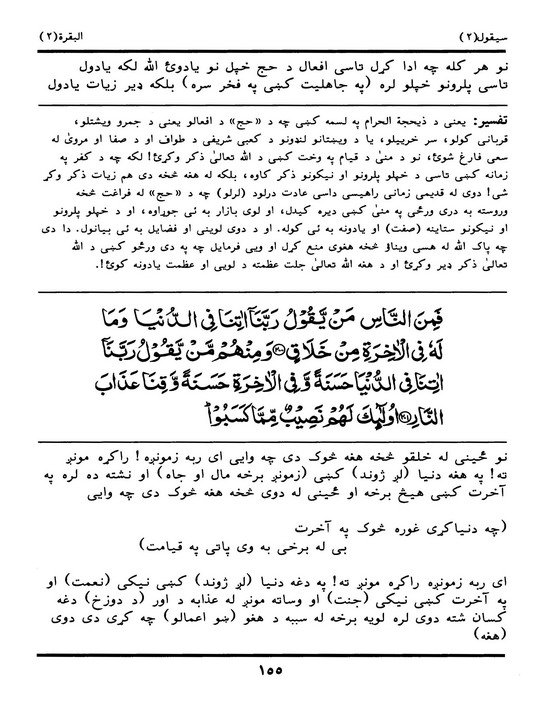 سیقول(٢) البقرة(٢)
نو هر کله چه ادا کړل تاسی افعال د حج خپل نو یادوئ الله لکه یادول
تاسی پلرونو خپلو لره (په جاهلیت کښی په فخر سره) بلکه ډیر زیات یادول
تفسیر: یعنی د ذیحجة الحرام په لسمه کښی چه د «حج» د افعالو یعنی د جمرو ویشتلو،
قربانی کولو، سر خرییلو، یا د ویښتانو لنډونو د کعبی شریفی د طواف او د صفا او مروئ له
سعی فارغ شوئ، نو د منیٰ د قیام په وخت کښی د الله تعالیٰ ذکر وکړئ! لکه چه د کفر په
زمانه کښی تاسی د خپلو پلرونو او نیکونو ذکر کاوه، بلکه له هغه څخه دی هم زیات ذکر وکړ
شی! دوی له قدیمی زمانی راهیسی داسی عادت درلود (لرلو) چه د «حج» له فراغت څخه
وروسته به دری ورځی په منیٰ کښی دیره کیدل، او لوی بازار به ئی جوړاوه، او د خپلو پلرونو
او نیکونو ستاینه (صفت) او یادونه به ئی کوله. او د دوی لوینی او فضایل به ئی بیانول. دا دی
چه پاک الله له هسی ویناؤ څخه هغوی منع کړل او ویی فرمایل چه په دی ورځو کښی د الله
تعالیٰ ذکر ډیر وکړئ او د هغه الله تعالیٰ جلت عظمته د لویی او عظمت یادونه کوئ!.
فَمِنَ النَّاسِ مَنْ يَّقُوْلُ رَبَّنَآ اٰتِنَا فِي الدُّنْيَا وَمَا
لَهٗ فِي الْاٰخِرَةِ مِنْ خَلَاقٍ ﴿٢٠٠﴾ وَمِنْهُمْ مَّنْ يَّقُوْلُ رَبَّنَآ
اٰتِنَا فِي الدُّنْيَا حَسَنَةً وَّفِي الْاٰخِرَةِ حَسَنَةً وَّقِنَا عَذَابَ
النَّارِ ﴿٢٠١﴾ اُولٰٓئِكَ لَهُمْ نَصِيْبٌ مِّمَّا كَسَبُوْا ؕ
نو ځینی له خلقو څخه هغه څوک دی چه وایی ای ربه زمونږه! راکړه مونږ
ته! په هغه دنیا (لږ ژوند) کښی (زمونږ برخه مال او جاه) او نشته ده لره په
آخرت کښی هیڅ برخه او ځینی له دوی څخه هغه څوک دی چه وایی
(چه دنیاکړی غوره څوک په آخرت
بی له برخی به وی پاتی په قیامت)
ای ربه زمونږه راکړه مونږ ته! په دغه دنیا (لږ ژوند) کښی نیکی (نعمت) او
په آخرت کښی نیکی (جنت) او وساته مونږ له عذابه د اور (د دوزخ) دغه
کسان شته دوی لره لویه برخه له سببه د هغو (ښو اعمالو) چه کړی دی دوی
(هغه)
١٥٥